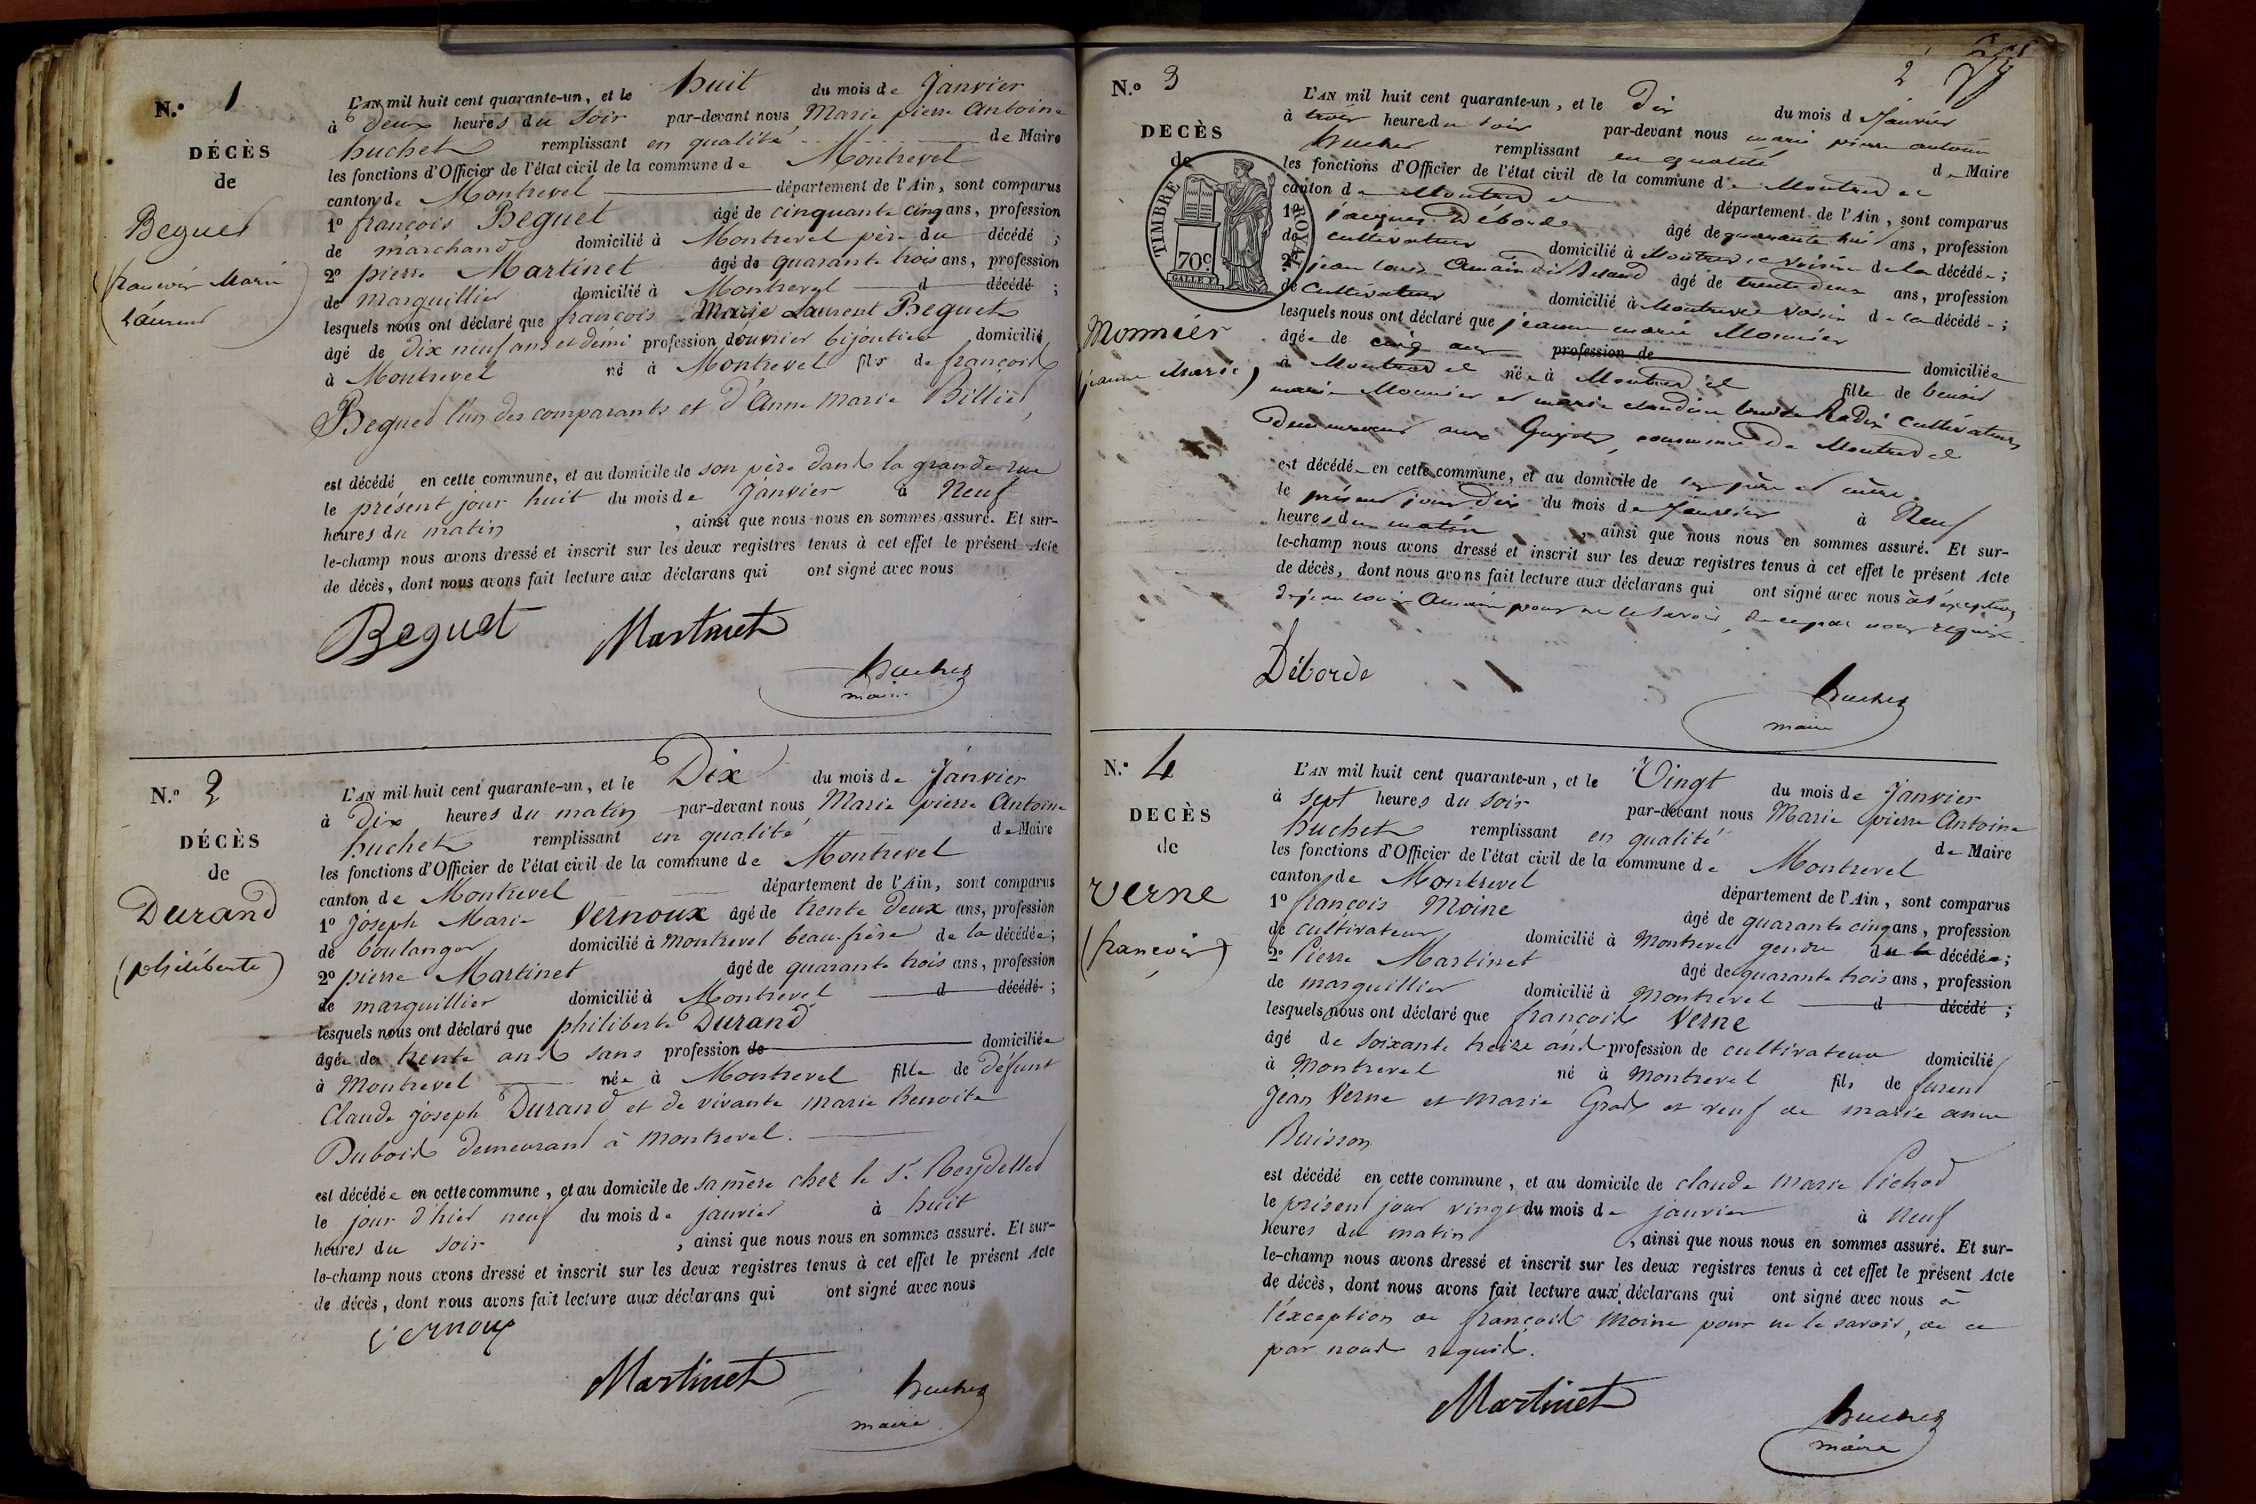 N.º 1
DÉCÈS
de
Beguet
(françois Marie
Laurent)
L'AN mil huit cent quarante-un, et le huit du mois de Janvier
à deux heures du Soir par-devant nous Marie pierre Antoine
huchet remplissant en qualité de Maire
les fonctions d'Officier de l'état civil de la commune de Montrevel
canton de Montrevel département de l'Ain, sont comparus
1º françois Beguet âgé de cinquante cinq ans, profession
de marchand domicilié à Montrevel père du décédé ;
2º pierre Martinet âgé de quarante trois ans, profession
de marguillier domicilié à Montrevel d décédé ;
lesquels nous ont déclaré que françois Marie Laurent Beguet
âgé de dix neuf ans et demi profession d'ouvrier bijoutier domicilié
à Montrevel né à Montrevel fils de françois
Beguet l'un des comparants et d'Anne Marie Billiet,
est décédé en cette commune, et au domicile de son père dans la grande rue
le présent jour huit du mois de Janvier à Neuf
heures du matin, ainsi que nous nous en sommes assuré. Et sur-
le-champ nous avons dressé et inscrit sur les deux registres tenus à cet effet le présent Acte
de décès, dont nous avons fait lecture aux déclarans qui ont signé avec nous
Beguet Martinet
huchet
maire
N.º 2
DÉCÈS
de
Durand
(philiberte)
L'AN mil huit cent quarante-un, et le Dix du mois de Janvier
à Dix heures du matin par-devant nous Marie pierre Antoine
huchet remplissant en qualité de Maire
les fonctions d'Officier de l'état civil de la commune de Montrevel
canton de Montrevel département de l'Ain, sont comparus
1º Joseph Marie Vernoux âgé de trente Deux ans, profession
de boulanger domicilié à Montrevel beau-frère de la décédée;
2º pierre Martinet âgé de quarante trois ans, profession
de marguillier domicilié à Montrevel d décédé ;
lesquels nous ont déclaré que philiberte Durand
âgée de trente ans sans profession de domiciliée
à Montrevel née à Montrevel fille de défunt
Claude joseph Durand et de vivante marie Benoite
Dubois demeurant à Montrevel.
est décédée en cette commune, et au domicile de sa mère chez le Sr. Reydellet
le jour d'hier neuf du mois de janvier à huit
heures du soir, ainsi que nous nous en sommes assuré. Et sur-
le-champ nous avons dressé et inscrit sur les deux registres tenus à cet effet le présent Acte
de décès, dont nous avons fait lecture aux déclarans qui ont signé avec nous
Vernoux
Martinet
huchet
maire
2
N.º 3
DECÈS
de
TIMBRE ROYAL
70 c
Monnier
jeanne Marie)
L'AN mil huit cent quarante-un, et le Dix du mois d Janvier
à trois heures du soir par-devant nous marie pierre antoine
huchet remplissant en qualité de Maire
les fonctions d'Officier de l'état civil de la commune de Montrevel
canton de Montrevel département de l'Ain, sont comparus
1º jacques Déborde âgé de quarante huit ans, profession
de cultivateur domicilié à Montrevel voisin de la décédée ;
2º jean louis Amain dit âgé de trente deux ans, profession
de Cultivateur domicilié à Montrevel voisin de la décédée ;
lesquels nous ont déclaré que jeanne marie Monnier
âgée de cinq ans profession de domiciliée
à Montrevel née à Montrevel fille de benoit
marie Monnier et marie claudine Radix Cultivateurs
Demeurant aux Guyots, commune De Montrevel
est décédée en cette commune, et au domicile de ses père et mère
le présent jour Dix du mois de Janvier à Neuf
heures du matin, ainsi que nous nous en sommes assuré. Et sur-
le-champ nous avons dressé et inscrit sur les deux registres tenus à cet effet le présent Acte
de décès, dont nous avons fait lecture aux déclarans qui ont signé avec nous à l'exception
de jean louis Amain pour ne le savoir, de ce par nous requis.
Déborde
huchet
maire
N.º 4
DECÈS
de
Verne
(françois)
L'AN mil huit cent quarante-un, et le Vingt du mois de Janvier
à sept heures du soir par-devant nous Marie pierre Antoine
huchet remplissant en qualité de Maire
les fonctions d'Officier de l'état civil de la commune de Montrevel
canton de Montrevel département de l'Ain, sont comparus
1º françois Moine âgé de quarante cinq ans, profession
de cultivateur domicilié à Montrevel gendre du la décédée;
2º Pierre Martinet âgé de quarante trois ans, profession
de marguillier domicilié à Montrevel d décédé ;
lesquels nous ont déclaré que françois Verne
âgé de soixante treize ans profession de cultivateur domicilié
à Montrevel né à Montrevel fils de furent
Jean Verne et Marie Gros et veuf de marie anne
Buisson
est décédé en cette commune, et au domicile de claude Marie Pichod
le présent jour vingt du mois de janvier à neuf
heures du matin, ainsi que nous nous en sommes assuré. Et sur-
le-champ nous avons dressé et inscrit sur les deux registres tenus à cet effet le présent Acte
de décès, dont nous avons fait lecture aux déclarans qui ont signé avec nous à
l'exception de françois Moine pour ne le savoir, de ce
par nous requis.
Martinet
huchet
maire